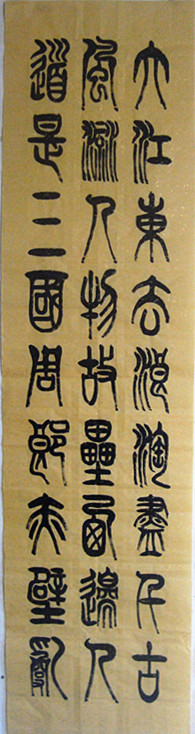 大江東去浪淘盡千古
風流人物故壘西邊人
道是三國周郎赤壁亂